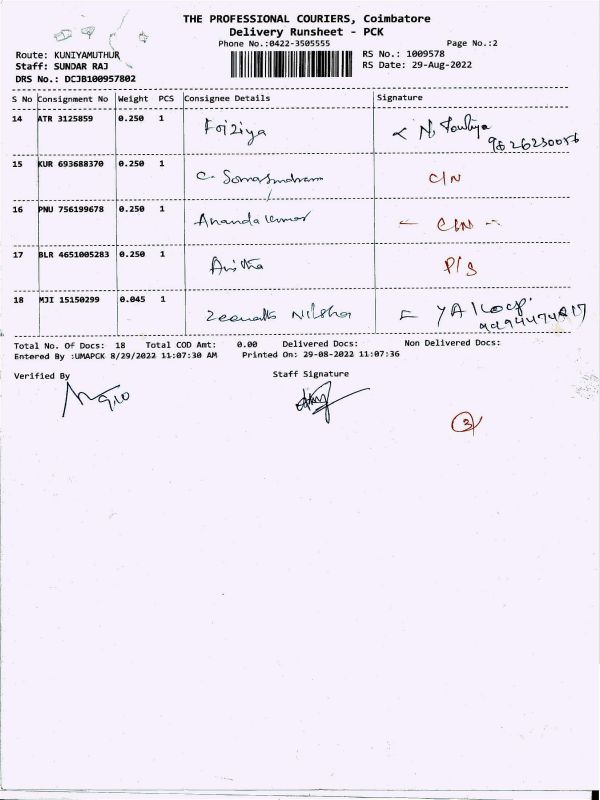 THE PROFESSIONAL COURIERS, Coimbatore
Delivery Runsheet - PCK
Phone No.:0422-3505555
Page No.:2
Route: KUNIYAMUTHUR
Staff: SUNDAR RAJ
DRS No.: DCJB100957802
RS No.: 1009578
RS Date: 29-Aug-2022
S No Consignment No Weight PCS Consignee Details Signature
14 ATR 3125859 0.250 1
15 KUR 693688370 0.250 1 C. Somasundram C/N
16 PNU 756199678 0.250 1 Ananda kumar C/N
17 BLR 4651005283 0.250 1 Anitha P/S
18 MJI 15150299 0.045 1
Total No. Of Docs: 18 Total COD Amt: 0.00 Delivered Docs: Non Delivered Docs:
Entered By :UMAPCK 8/29/2022 11:07:30 AM Printed On: 29-08-2022 11:07:36
Verified By Staff Signature
3